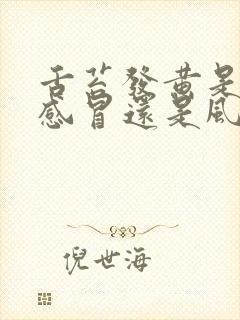 舌苔發黄是
感冒還是風
倪世海